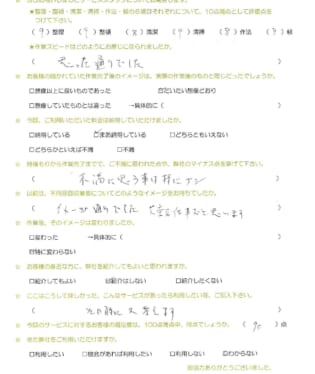 ★整理・整頓・清潔・清掃・作法・躾の6項目それぞれについて、10点満点として評価点を
つけて下さい。
(9)整理 ( )整頓 (8)清潔 (9)清掃 (8)作法 ( )躾
★作業スピードはどのようにお感じになられましたか。
( 思った通りでした )
☆ お客様の描かれていた作業完了後のイメージは、実際の作業後のものと同じだったでしょうか。
□想像以上に良いものであった ☑だいたい想像どおり
□想像していたものとは違った →具体的に( )
☆ 今回、ご利用いただいた料金は納得していただけましたか。
□納得している ☑まあ納得している □どちらともいえない
□どちらかといえば不満 □不満
☆ 作業完了までで、ご不満に思われた点や、弊社のマイナス点を挙げて下さい。
( 不満に思う事は特にナシ )
☆ 以前は、不用品回収業者についてどのようなイメージをお持ちでしたか。
( イメージ通りでした と思います )
☆ 作業後、そのイメージは変わりましたか。
□変わった →具体的に( )
☑特に変わらない
☆ お客様の身近な方に、弊社を紹介してもよいと思われますか。
□紹介してもよい ☑紹介はしない □紹介したくない
☆ ここはこうして欲しかった、こんなサービスがあったら利用したい等、ご記入下さい。
( その時に又考えます )
☆ 今回のサービスに対するお客様の満足度は、100点満点中、何点でしょうか。( 90 )点
☆ また弊社をご利用いただけますか。
□利用したい □機会があれば利用したい □利用しない ☑わからない
ご協力ありがとうございました。